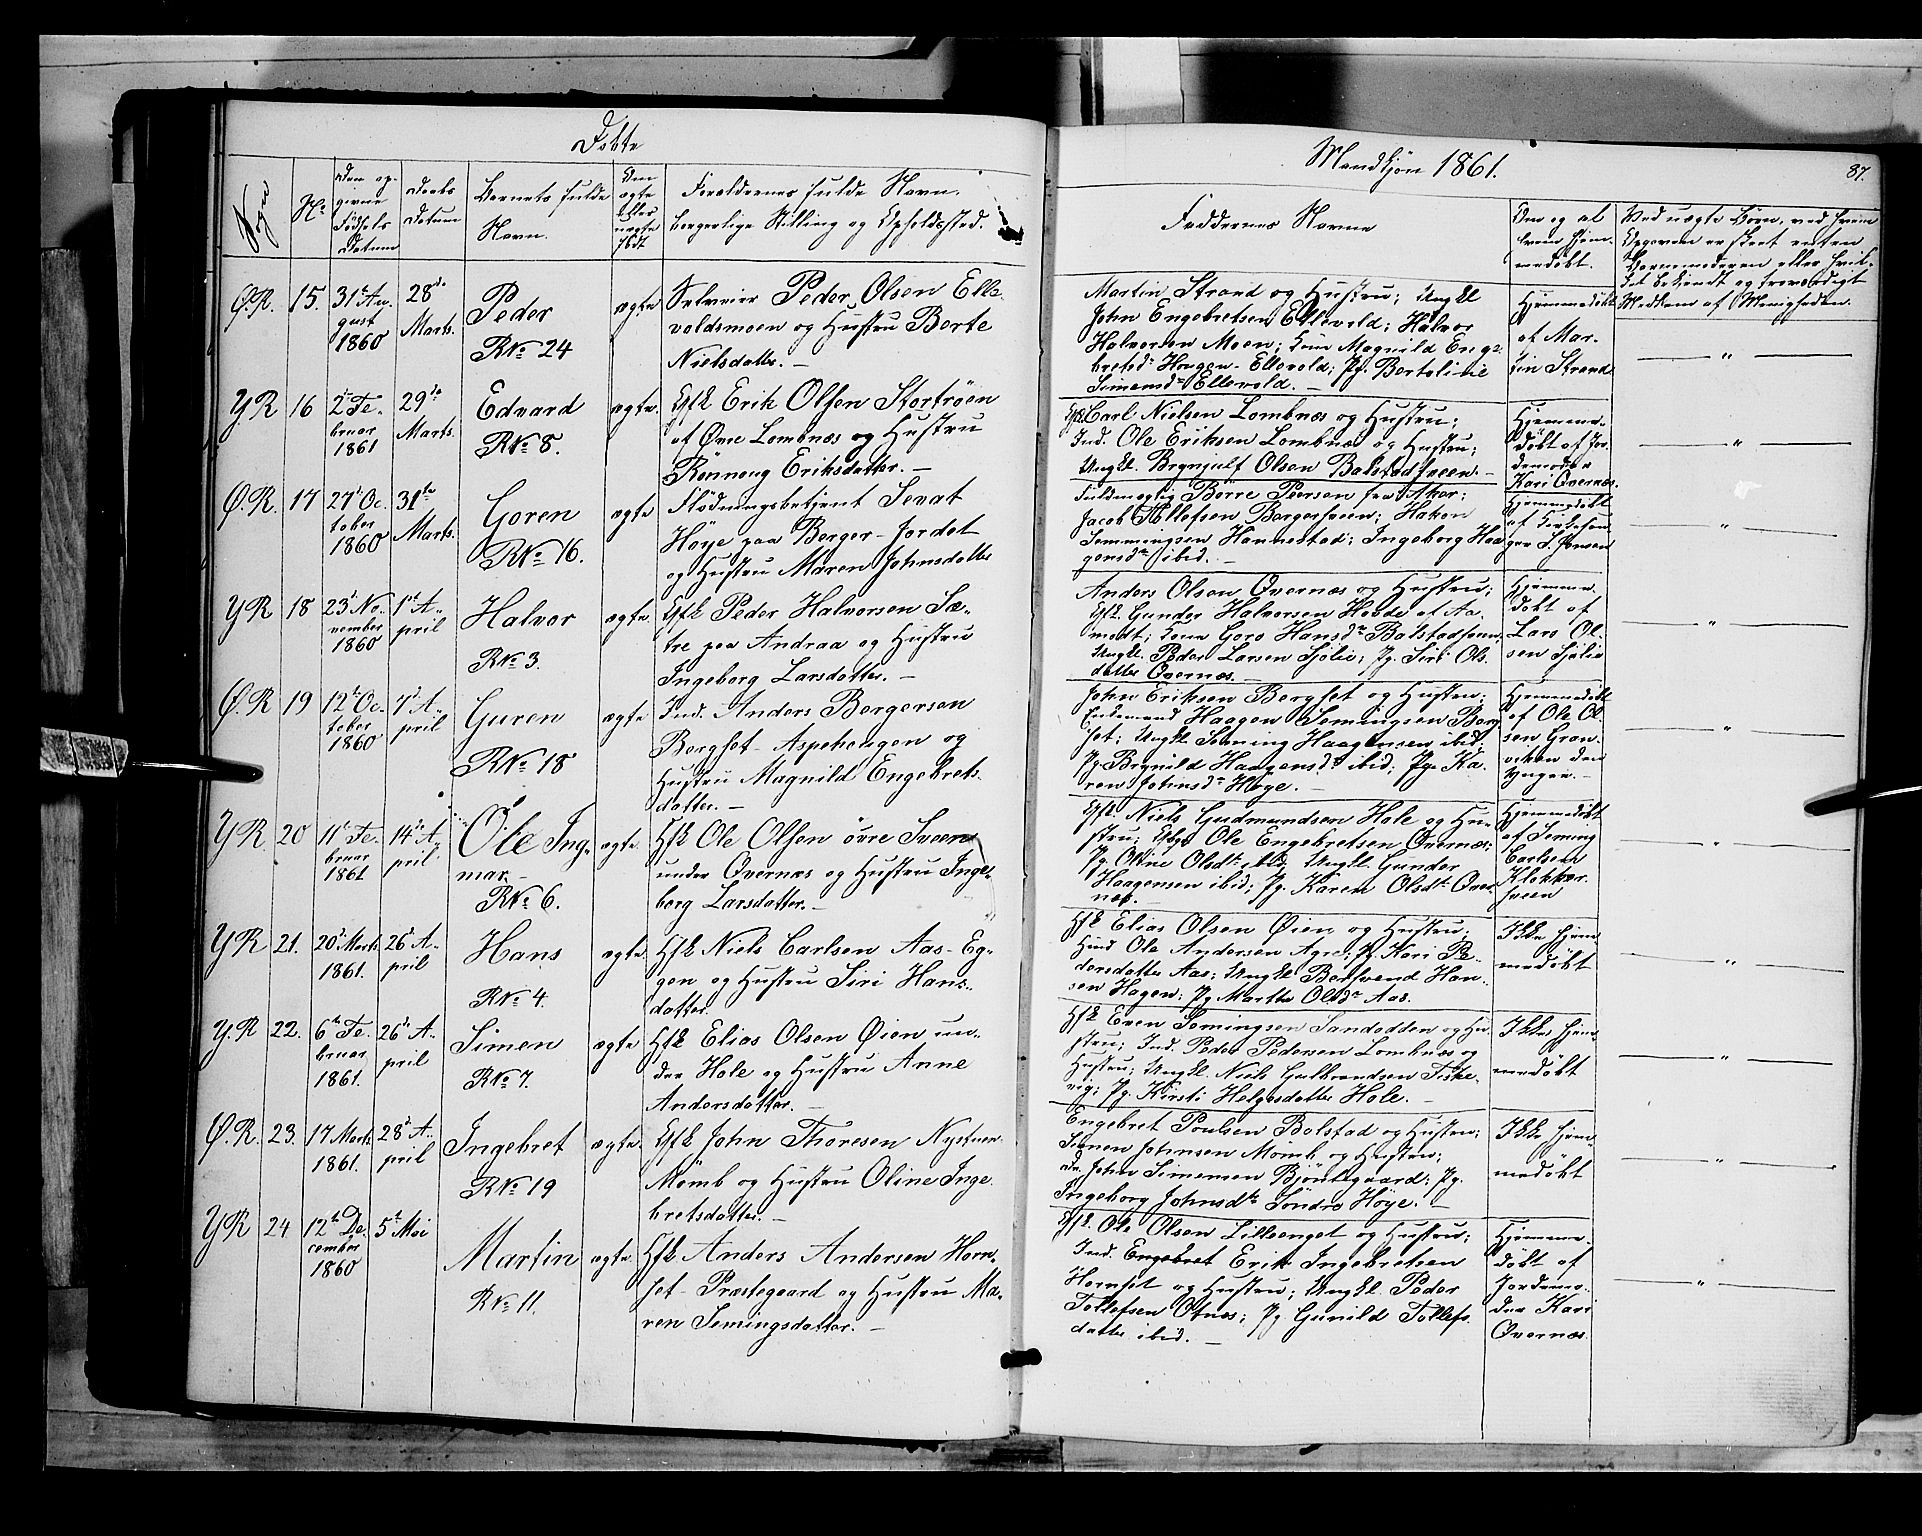 Døbte
Mandkjøn 1861.
87.
Sogn
No
Den op-
givne
Fødsels
Datum
Daabs
Datum
Barnets fulde
Navn.
Om
ægte
eller
uægte
født
Forældrenes fulde Navn,
borgerlige Stilling og Opholdssted.
Faddernes Navne
Om og af
hvem hjem-
medøbt.
Ved uægte Børn, ved hvem
Opgaven er skeet enten
Barnemoderen eller hvil-
ket bekjendt og troværdigt
Medlem af Menigheden.
Ø.R. 15. 31te Au-
gust
1860
28de
Marts.
Peder
RNo 24
ægte
Selveier Peder Olsen Elle-
voldsmoen og Hustru Berte
Nielsdatter. —
Martin Strand og Hustru; Ungkl
John Engebretsen Ellevold; Halvor
Halvorsen Moen; Kone Magnild Enge-
bretsdr Haugen-Ellevold; Pg. Bertoline
Simensdr Ellevold. —
Hjemmedøbt
af Mar-
tin Strand
— " —
Y R 16 2d Fe-
bruar
1861
29de
Marts.
Edvard
RNo 8.
ægte.
Gfk Erik Olsen Stortrøen
af Øvre Lombnæs og Hustru
Rønnoug Eriksdatter. —
Gfk Carl Nielsen Lombnæs og Hustru;
Ind. Ole Eriksen Lombnæs og Hustru;
Ungkl. Brynjulf Olsen Bolstadsveen. —
Hjemme-
døbt af Jor-
demoder
Kari Øvernæs.
— " —
Ø.R. 17 27d Oc-
tober
1860
31te
Marts.
Goren
RNo 16.
ægte
Flødningsbetjent Sevat
Høye paa Berger-Jordet
og Hustru Maren Johnsdatter
Fuldmægtig Børre Peersen fra Aker;
Jacob Tollefsen Bergersveen; Haken
Semmingsen Hannestad; Ingeborg Haa-
gensdr ibid. —
Hjemmedøbt
af Kirkesan-
ger S. Jensen
— " —
Y R 18 23d No-
vember
1860
1ste A-
pril
Halvor
RNo 3.
ægte.
Gfk Peder Halvorsen Sæ-
tre paa Andraa og Hustru
Ingeborg Larsdatter. —
Anders Olsen Øvernæs og Hustru;
Gfk. Gunder Halvorsen Hovde af Aa-
modt; Kone Goro Hansdr Bolstadsveen,
Ungkl. Peder Larsen Sjølie; Pg. Siri Ols-
datter Øvernæs. —
Hjemme-
døbt af
Lars Ol-
sen Sjølie
— " —
Ø.R 19 12te Oc-
tober
1860
7d A-
pril
Guren
RNo 18
ægte
Ind. Anders Bergersen
Bergset-Aspehaugen og
Hustru Magnild Engebrets-
datter. —
John Eriksen Bergset og Hustru;
Enkemand Haagen Semingsen Berg-
set; Ungkl Seming Haagensen ibid;
Pg. Brynild Haagensdr ibid; Pge Ka-
ren Johnsdr Høye. —
Hjemmedøbt
af Ole Ol-
sen Gran-
den
yngre. —
— " —
Y R. 20 11te Fe-
bruar
1861
14de A-
pril.
Ole Ing-
mar. —
RNo 6.
ægte.
Hfk Ole Olsen øvre Sveen
under Øvernæs og Hustru Inge-
borg Larsdatter. —
Gfk. Niels Gudmundsen Hole og Hu-
stru; Ole Engebretsen Øvernæs;
Pg. Oline Olsdtr ibid; Ungkl. Gunder
Haagensen ibid; Pg. Karen Olsdtr Øver-
næs. —
Hjemmedøbt
af Seming
Carlsen
Klokker-
sveen
— " —
Y R 21. 20d Marts
1861.
26d A-
pril
Hans
RNo 4.
ægte.
Hfk Niels Carlsen Aas-Eg-
gen og Hustru Siri Hans-
datter.
Hfk Elias Olsen Øien og Hustru;
Ole Andersen Agre; Pg. Kari Pe-
dersdatter Aas; Ungkl Botsvend Han-
sen Hagen; Pg Marthe Olsdr Aas.
Ikke hjem-
medøbt
— " —
Y.R 22. 6te Fe-
bruar
1861.
26d A-
pril
Simen
RNo 7.
ægte
Hfk Elias Olsen Øien un-
der Hole og Hustru Anne
Andersdatter. —
Hfk Even Semingsen Sandodden og Hu-
stru; Ind. Peder Pedersen Lombnæs og
Hustru; Ungkl. Niels Gulbrandsen Fiske-
vig; Pg. Kirsti Helgesdatter Hole. —
Ikke hjem-
medøbt
— " —
Ø.R. 23. 17 Marts
1861.
28d A-
pril
Ingebret
RNo 19
ægte.
Gfk John Thoresen Nystuen
Mømb og Hustru Oline Inge-
bretsdatter. —
Engebret Poulsen Bolstad og Hustru;
Simen Johnsen Mømb og Hustru;
do. John Simensen Bjøntegaard; Pg.
Ingeborg Johnsdr Søndre Høye. —
Ikke hjem-
medøbt
— " —
Y R 24 12te De-
cember
1860
5te Mai
Martin
RNo 11.
ægte.
Hfk Anders Andersen Horn-
set-Præstegaard og Hustru Ma-
ren Semingsdatter. —
Gfk. Ole Olsen Lilleenget og Hustru;
Ind. Engebret Erik Ingebretsen
Hornset og Hustru; Ungkl Peder
Tollefsen Otnæs; Pg Gunild Tollefs-
datter ibid. —
Hjemme-
døbt af
Jordemo-
der Kari
Øvernæs.
— " —